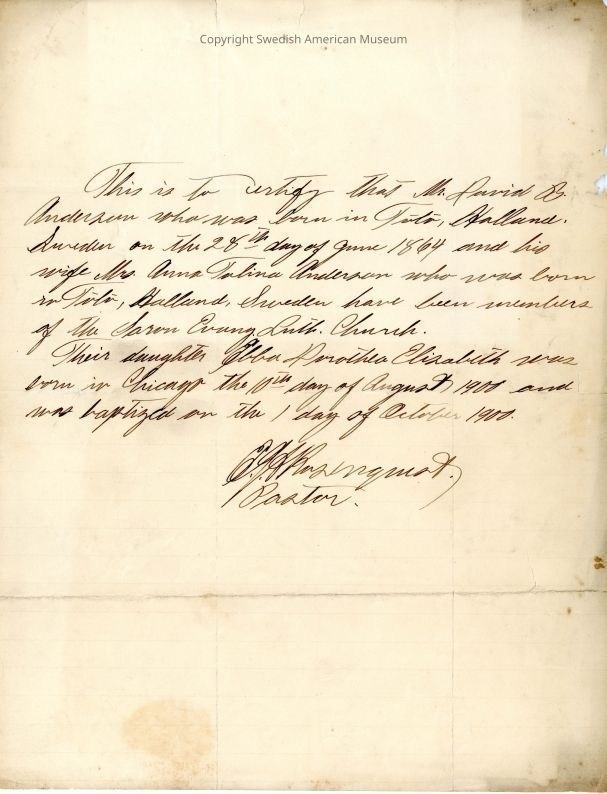 Copyright Swedish American Museum
This is to certify that Mr. David B.
Anderson who was born in Töto, Halland.
Sweden on the 28th day of June 1864 and his
wife Mrs Anna Talina Anderson who was born
in Töto, Halland, Sweden have been members
of the Saron Evang. Luth. Church.
Their daughter Ebba Dorothea Elisabeth was
born in Chicago the 10th day of August 1900 and
was baptized on the 1 day of October 1900.
Rosenquist.
Pastor.